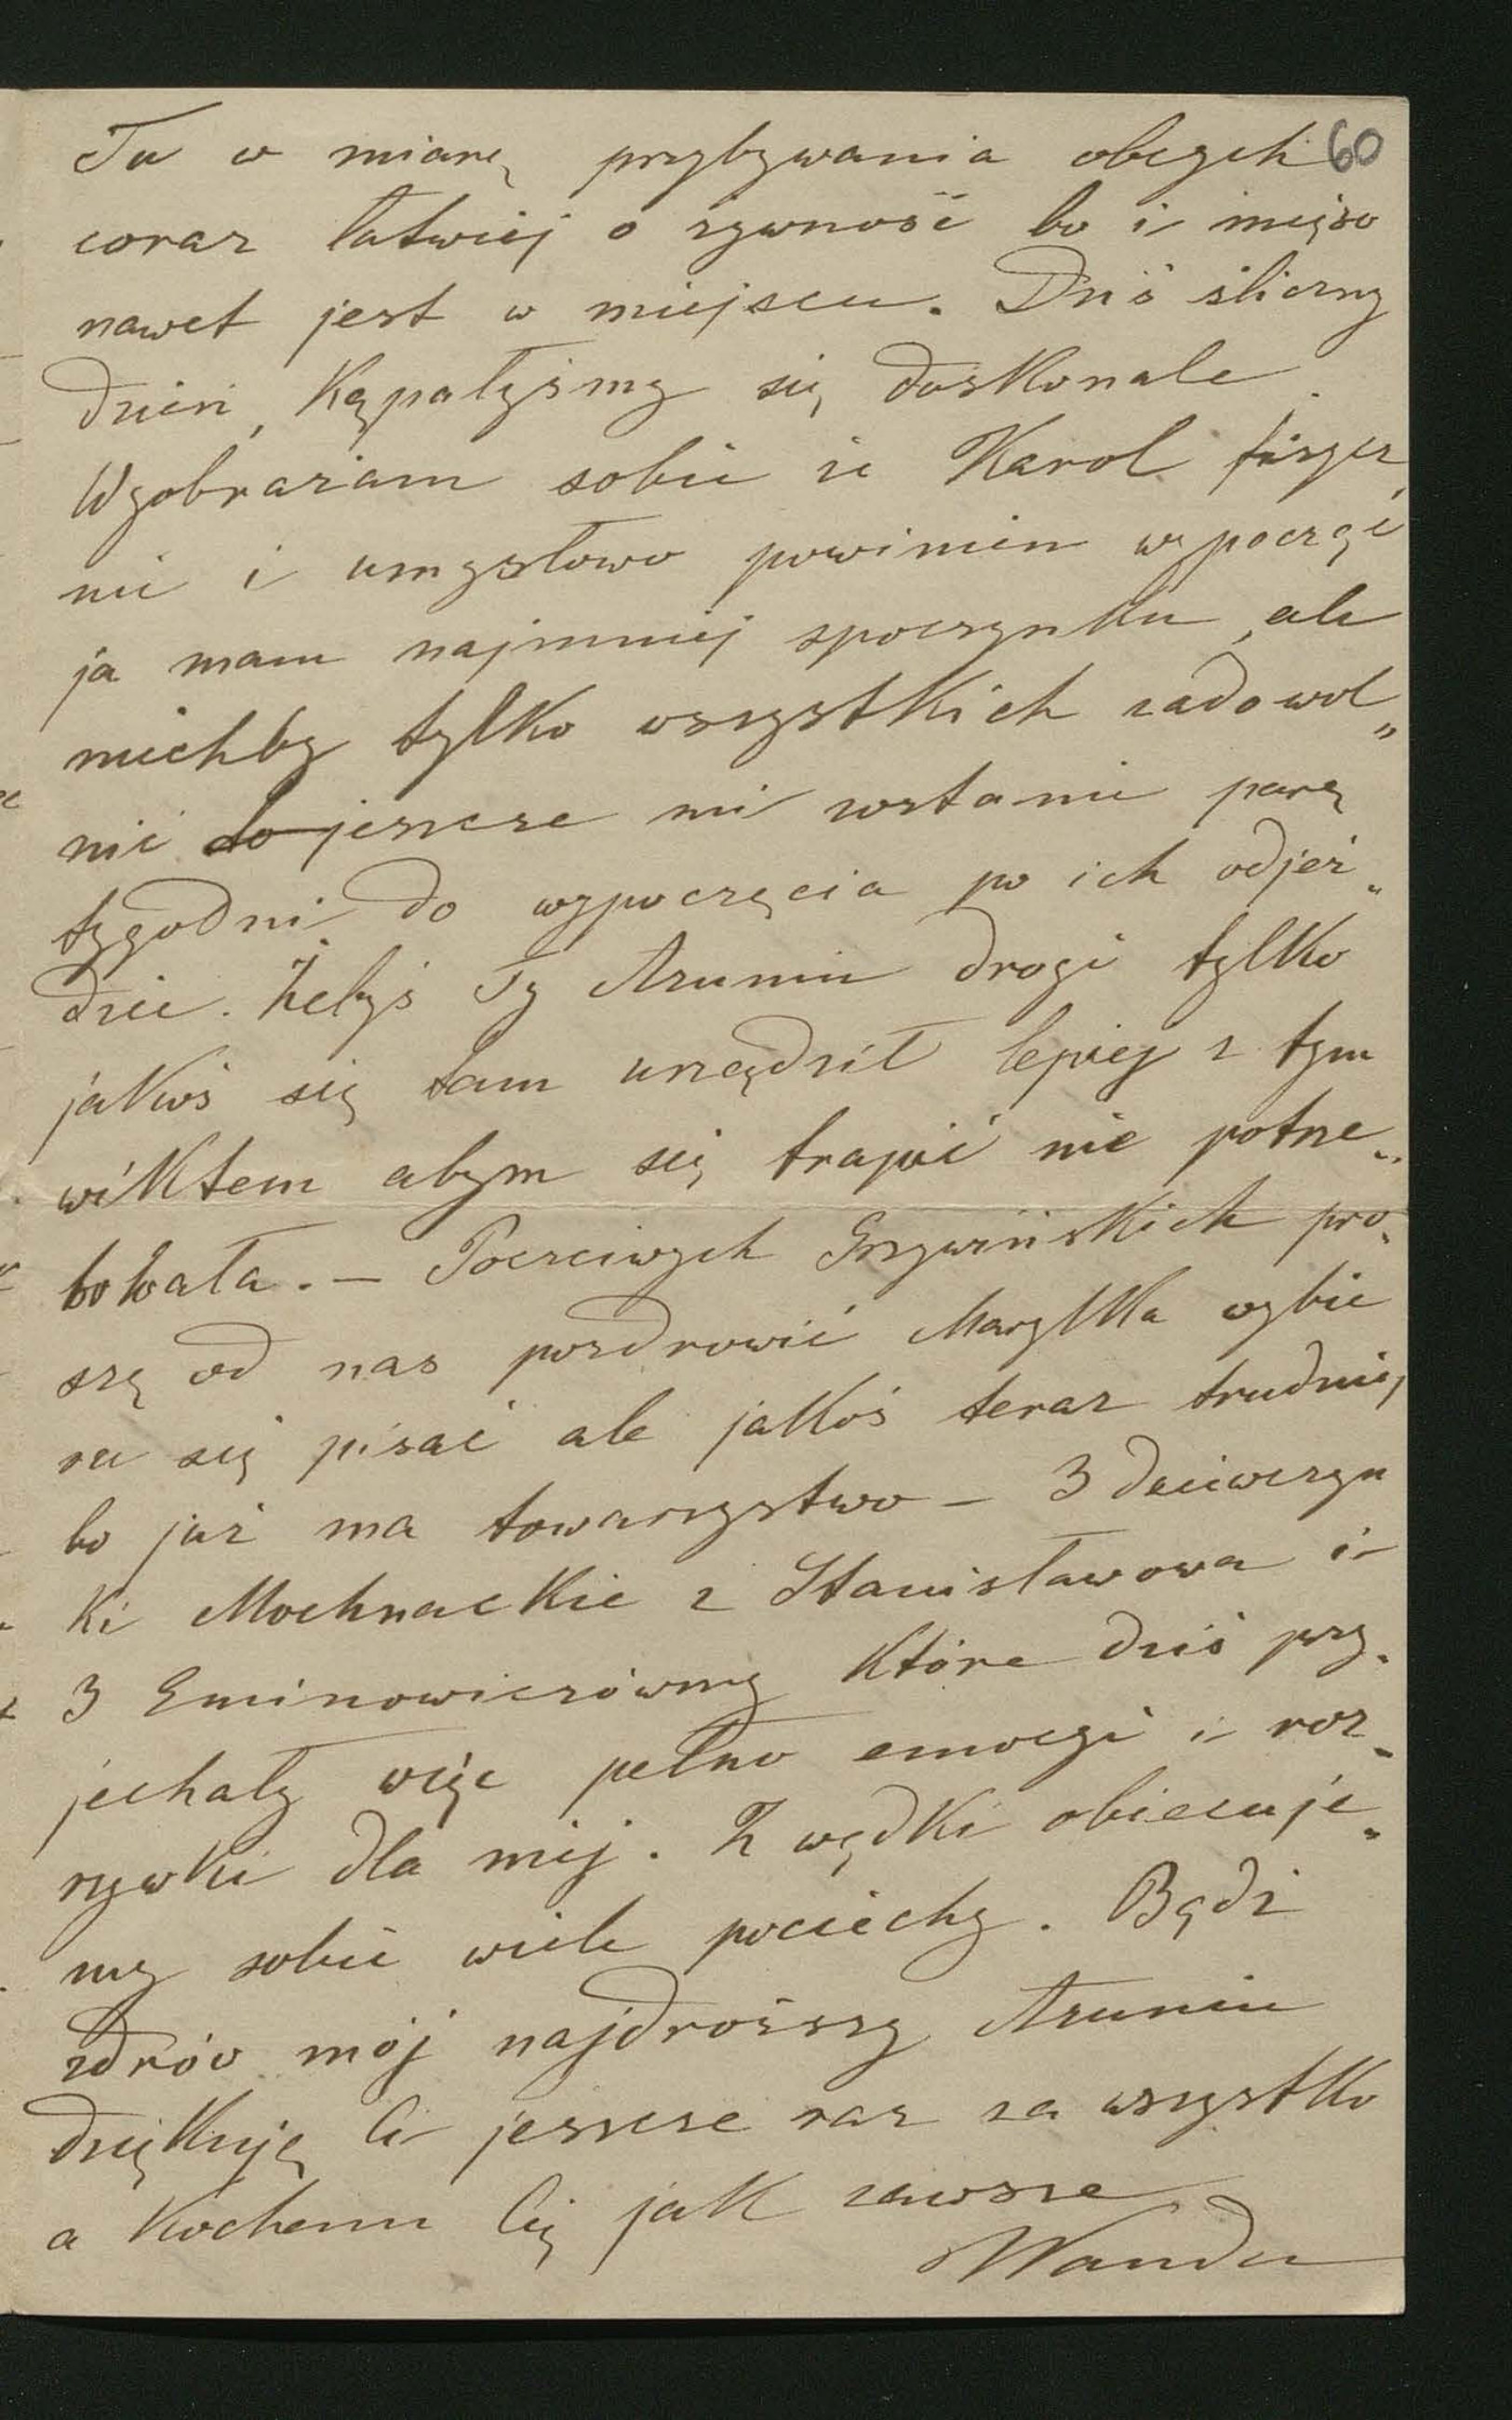 Tu w miarę przybywania obcych 60
coraz łatwiej o żywność bo i mięso
nawet jest w miejscu. Dziś śliczny
dzień, kąpałyśmy się doskonale.
Wyobrażam sobie że Karol fizycz
nie i umysłowo powinien wypocząć
ja mam najmniej spoczynku, ale
niechby tylko wszystkich zadowol„
nić do jeszcze mi zostanie parę
tygodni do wypoczęcia po ich odjeź„
dzie. Żebyś Ty Aruniu drogi tylko
jakoś się tam urządził lepiej z tym
wiktem abym się trapić nie potrze„
bowała. – Poczciwych Grzywińskich pro„
szę od nas pozdrowić Marylka wybie
ra się pisać ale jakoś teraz trudniej
bo już ma towarzystwo – 3 dziewczyn
ki Mochnackie z Stanisławowa i
3 Eminowiczówny które dziś przy„
jechały więc pełno emocyi i roz„
rywki dla niej. Z wędki obiecuje„
my sobie wiele pociechy. Bądź
zdrów mój najdroższy Aruniu
dziękuję Ci jeszcze raz za wszystko
a kocham Cię jak zawsze
Wanda